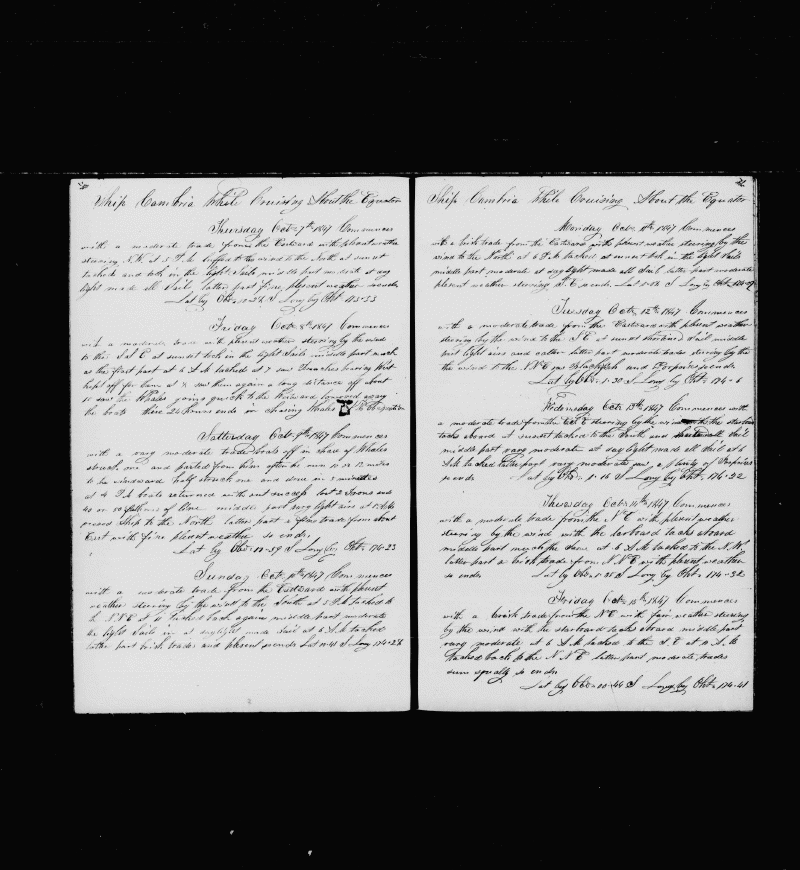 Ship Cambria While Cruising About the Equator
Thursday Oct 7th 1847 Commences
with a moderate trade from the Eastward with pleasant weather
stearing N.W. at 5 P.M. luffed to the wind to the North at sunset
tacked and took in the light Sails middle part moderate at day
light made all Sail latter part fine pleasent weather so ends
Lat by Obs S Long by Chr 173-33
Friday Oct 8th 1847 Commences
with a moderate trade with plesent weather stearing by the wind
to the S.S.E at sunset took in the light Sails middle part much
as the first part at 6 A.M. tacked at 7 saw bearing West
kept off for them at 8 saw them again a long distance off about
11 saw the Whales going quick to the Westward lowered away
the boats these 24 hours ends in chasing Whales No Observation
Satterday Oct 9th 1847 Commences
with a vary moderate trade boats off in chase of Whales
struck one and parted from him after he run 10 or 12 miles
to the windward half struck one and drew in 5 minutes
at 4 P.M. boats returned with out success lost 2 Irons and
40 or 50 fathoms of line middle part vary light airs at 1 A.M.
Ship to the North latter part a fine trade from about
East with fine plesent weather so ends
Lat by Obs S Long by Chr 174-23
Sunday Oct 10th 1847 Commences
with a moderate trade from the Eastward with plesent
weather stearing by the wind to the South at 5 P.M. tacked to
N.N.E at 11 tacked back again middle part moderate
the light Sails in at daylight made Sail at 6 A.M. tacked
latter part brisk trades and plesent so ends Lat S Long 174-28
Ship Cambria While Cruising About the Equator
Monday Oct 11th 1847 Commences
with a brisk trade from the Eastward with plesent weather stearing by the
wind to the North at 6 P.M. tacked at sunset took in the light Sails
middle part moderate at day light made all Sail latter part moderate
plesent weather stearing so ends Lat S Long by Chr
Tuesday Oct 12th 1847 Commences
with a moderate trade from the Eastward with plesent weather
stearing by the wind to the S.E at sunset shortened Sail middle
part light airs and calms latter part moderate trades stearing by the
the wind to the saw Blackfish and Porpoises so ends
Lat by Obs 1-30 S Long by Chr 174-6
Wednesday Oct 13th 1847 Commences with
a moderate trade from the stearing by the wind the starboard
tacks aboard at sunset tacked to the South and Sail
middle part vary moderate at day light made all Sail at 6
A.M. tacked latter part vary moderate a plenty of Porpoises
so ends Lat by Obs 1-16 S Long by Chr 174-22
Thursday Oct 14th 1847 Commences
with a moderate trade from the N.E with plesent weather
stearing by the wind with the larboard tacks aboard
middle part much the same at 6 A.M. tacked to the N.W.
latter part a brisk trade from N.N.E with plesent weather
so ends Lat by Obs S Long by Chr 174-32
Friday Oct 15th 1847 Commences
with a brisk trade from the N.E with fair weather stearing
by the wind with the starboard tacks aboard middle part
vary moderate at 6 A.M. tacked to the S.E at 10 A.M.
tacked back to the N.N.E latter part moderate trades
sum squally so ends
Lat by Obs 00-44 S Long by Chr 174-41